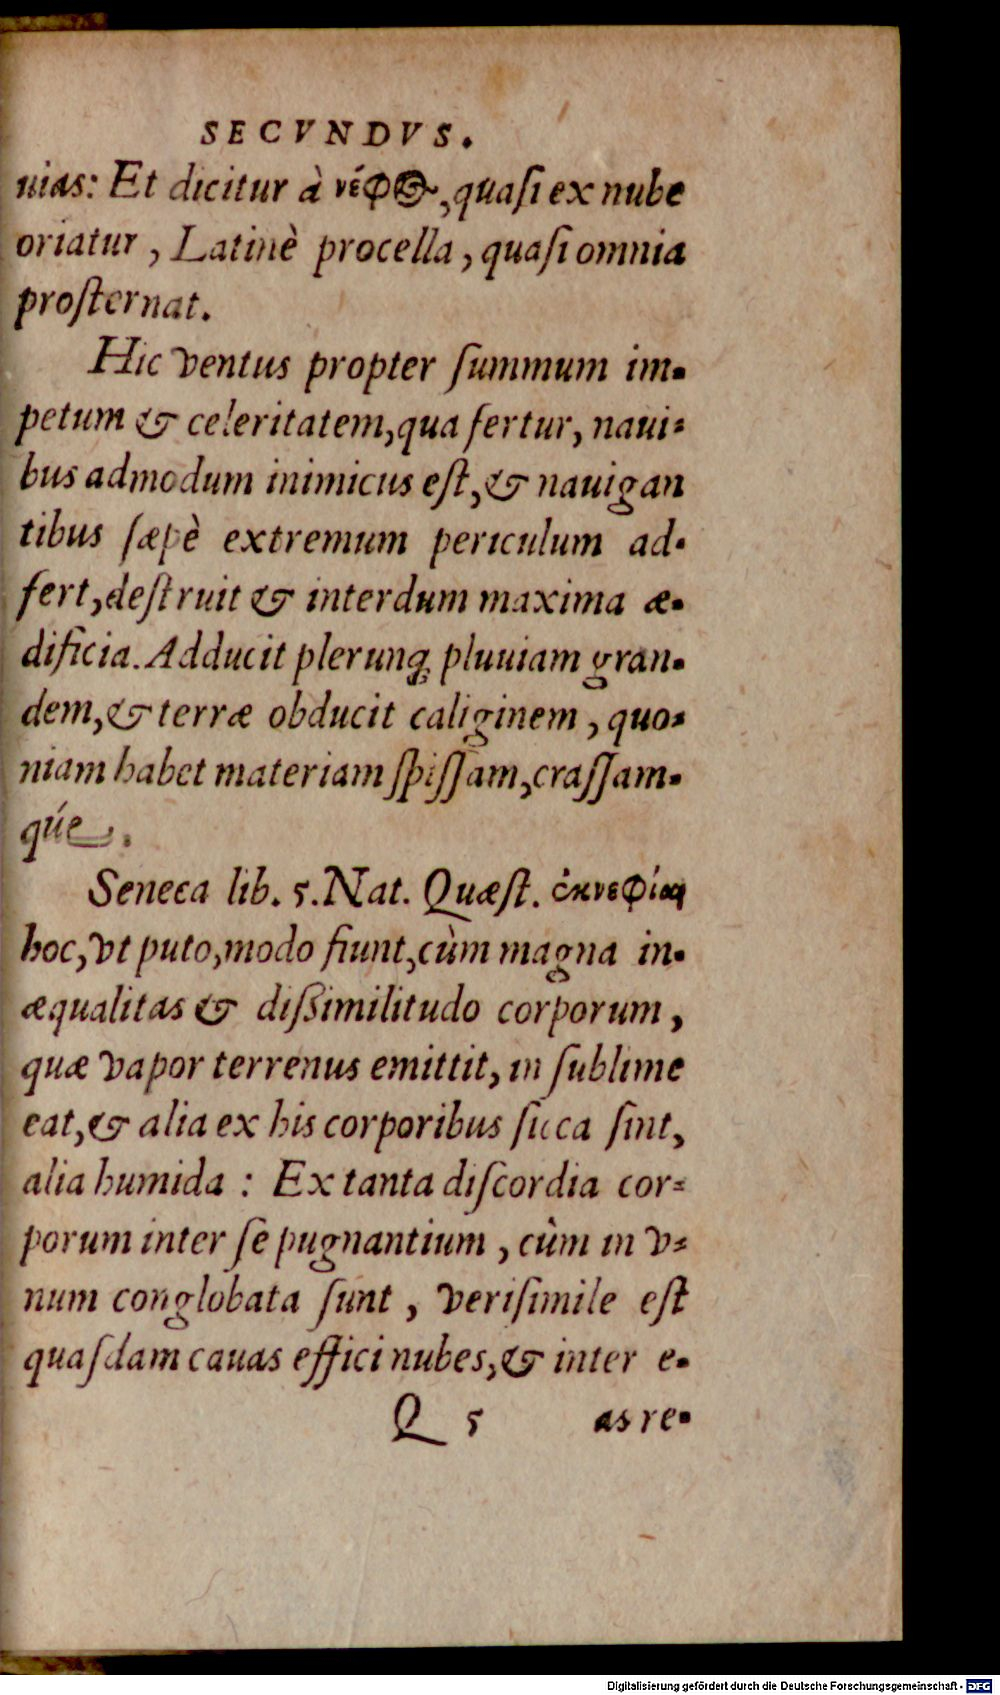 SECVNDVS.
uias: Et dicitur à νέφος, quaſi ex nube
oriatur, Latinè procella, quaſi omnia
proſternat.
Hic ventus propter ſummum im-
petum & celeritatem, qua fertur, naui-
bus admodum inimicus eſt, & nauigan
tibus ſæpè extremum periculum ad-
fert, deſtruit & interdum maxima æ-
dificia. Adducit plerunq; pluuiam gran-
dem, & terræ obducit caliginem, quo-
niam habet materiam ſpiſſam, craſſam-
qúe.
Seneca lib. 5. Nat. Quæſt. ἐκνεφίαι
hoc, vt puto, modo fiunt, cùm magna in-
æqualitas & diſsimilitudo corporum,
quæ vapor terrenus emittit, in ſublime
eat, & alia ex his corporibus ſicca ſint,
alia humida: Ex tanta diſcordia cor-
porum inter ſe pugnantium, cùm in v-
num conglobata ſunt, veriſimile eſt
quaſdam cauas effici nubes, & inter e-
Q 5 as re-
Digitalisierung gefördert durch die Deutsche Forschungsgemeinschaft - DFG